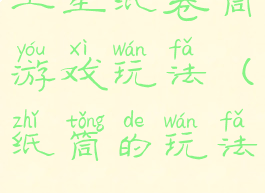 卫生纸卷筒
yóu xì wán fǎ
游戏玩法（
zhǐ tǒng de wán fǎ
纸筒的玩法